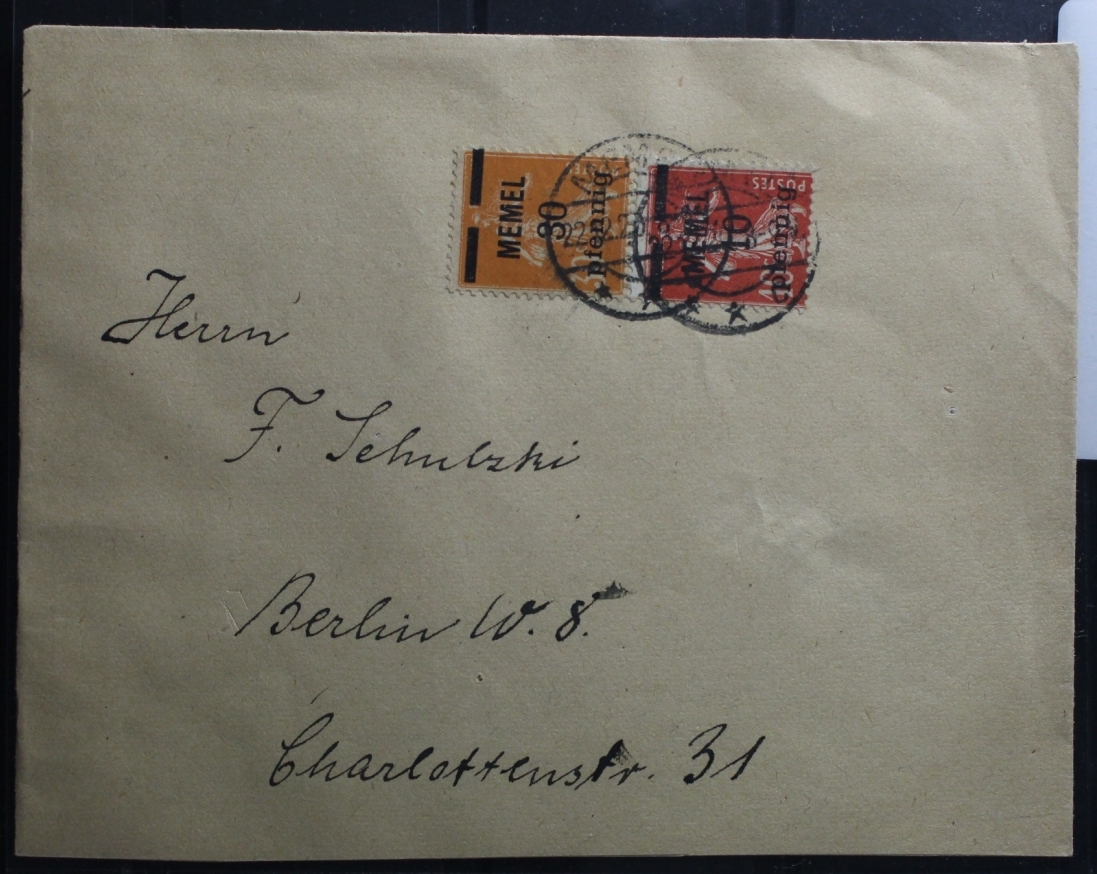 MEMEL
30
pfennig
POSTES
MEMEL
10
pfennig
Herrn
F. Schulzki
Berlin W. 8.
Charlottenstr. 31